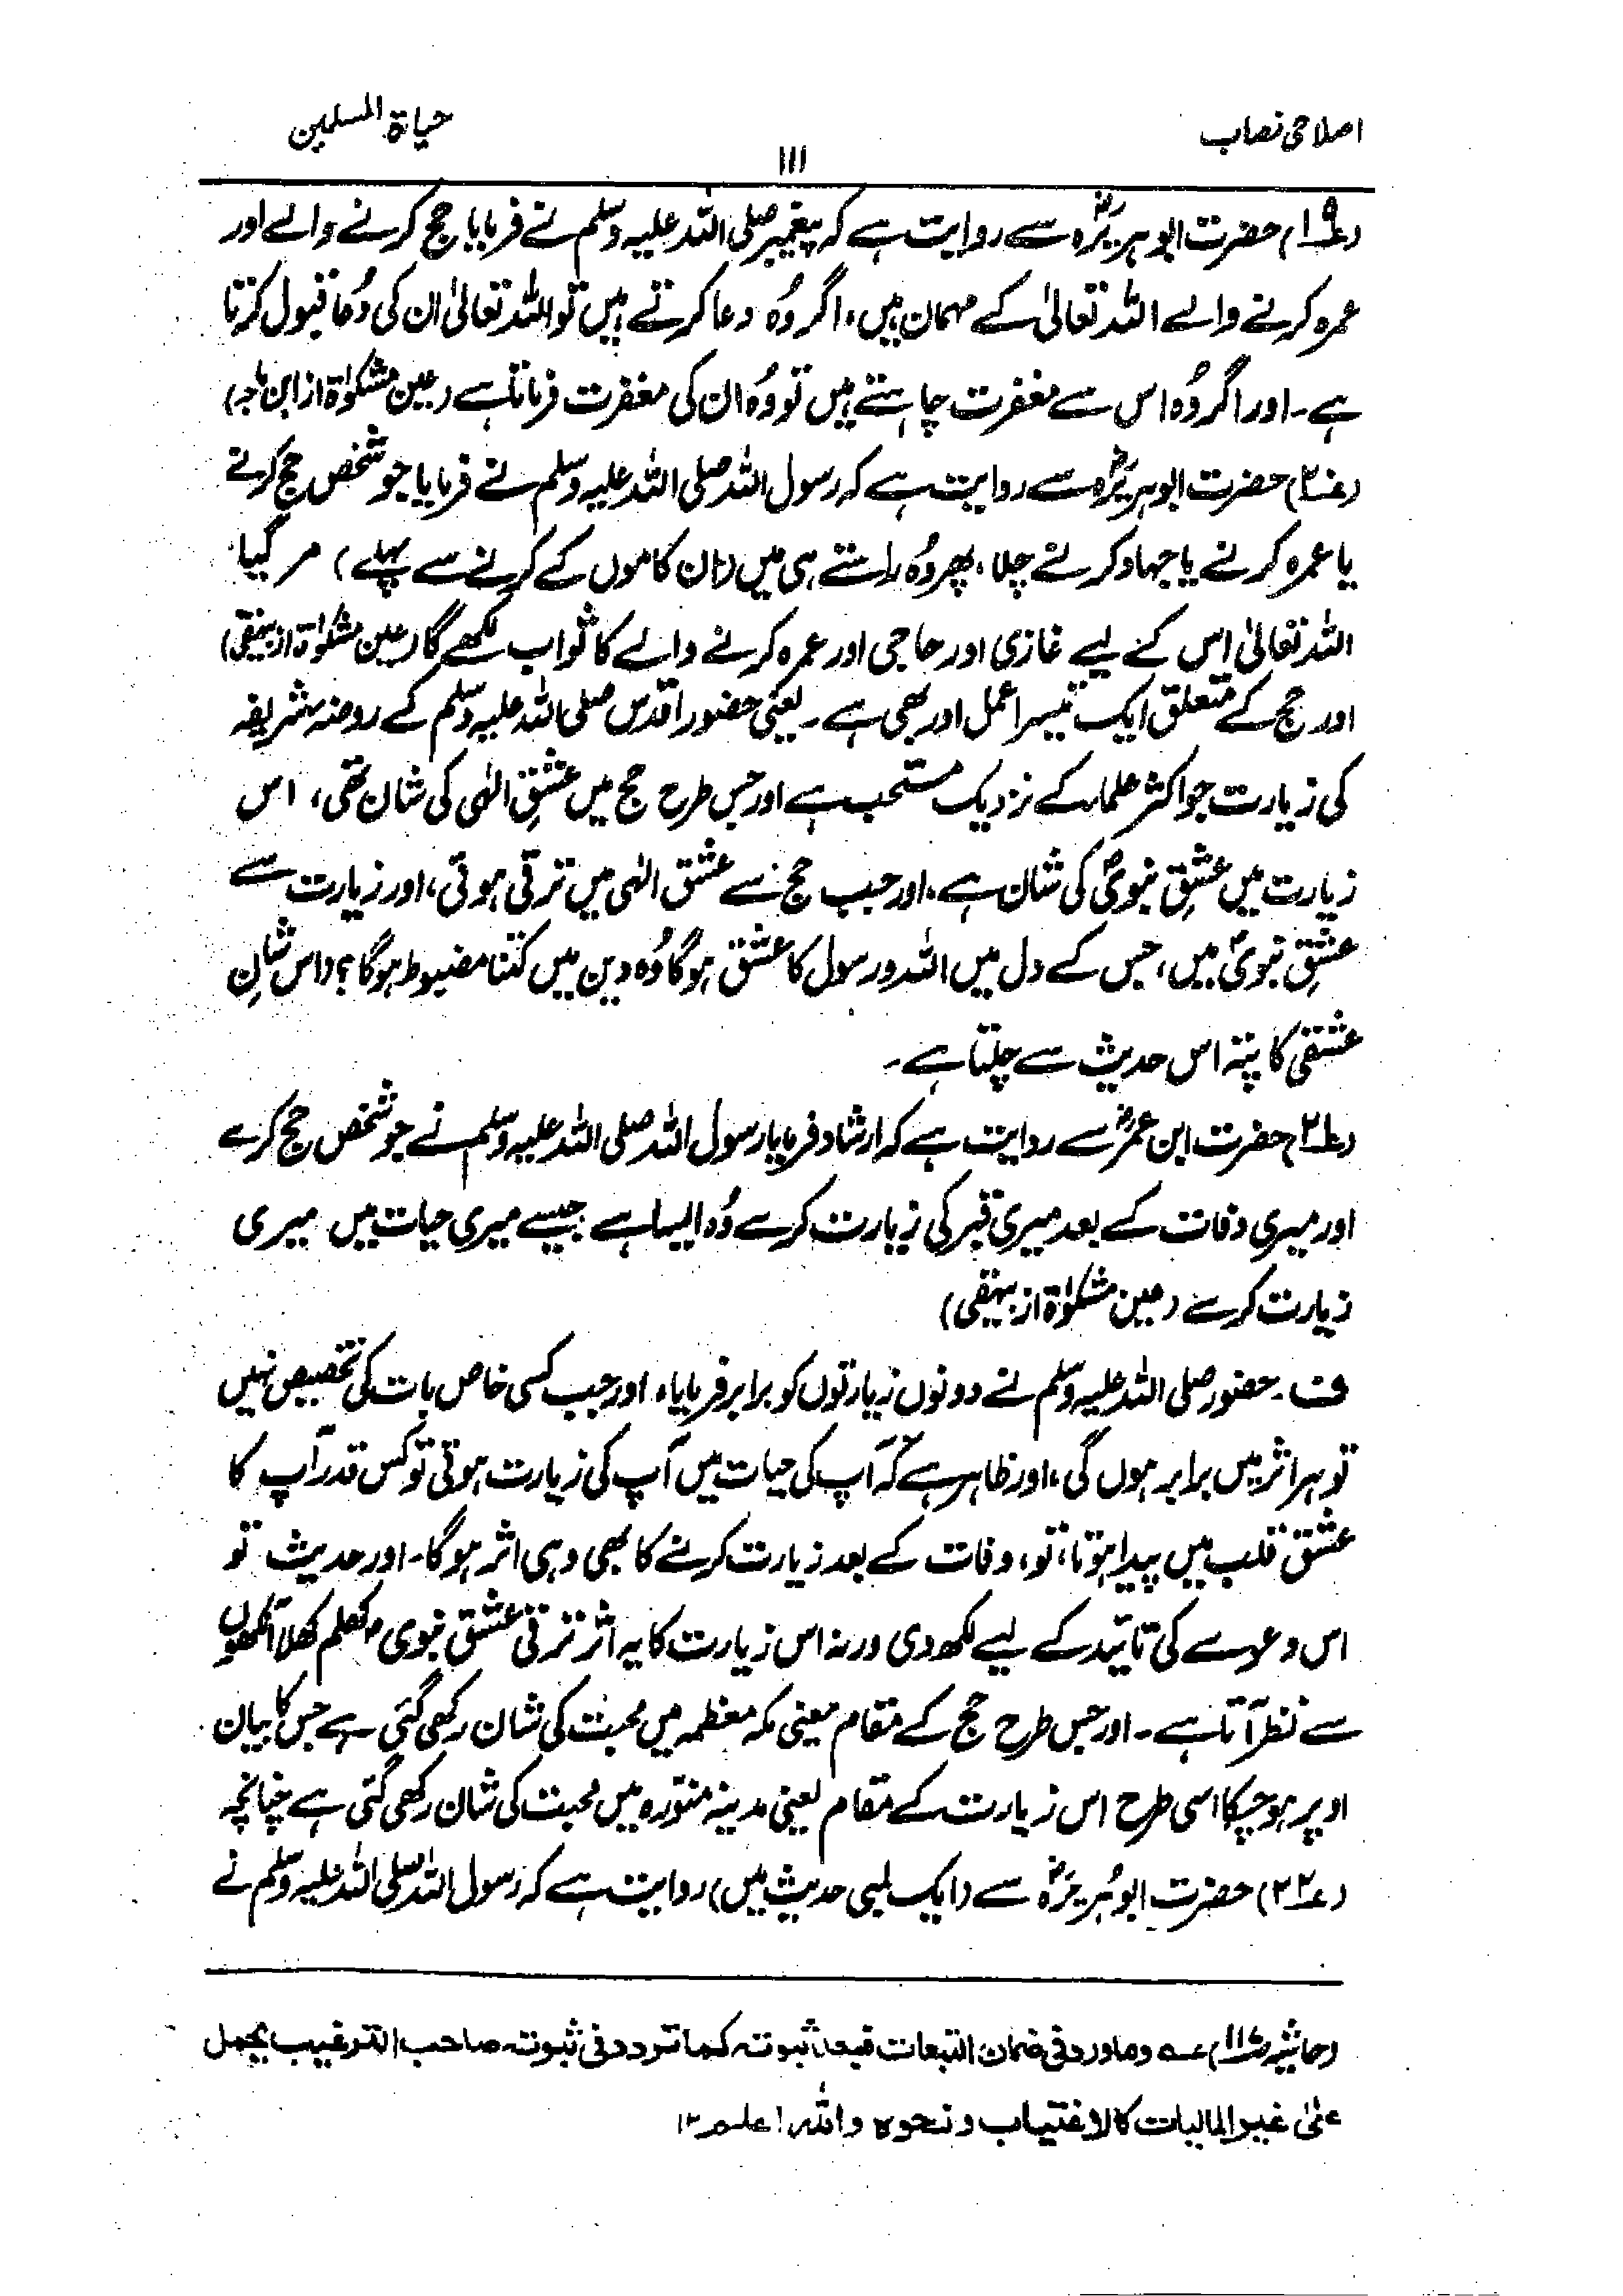 اصلاحی نصاب
۱۱۱
حیاۃ المسلمین
(۱۹) حضرت ابو ہریرہؓ سے روایت ہے کہ پیغمبر صلی اللہ علیہ وسلم نے فرمایا حج کرنے والے اور
عمرہ کرنے والے اللہ تعالیٰ کے مہمان ہیں، اگر وُہ دعا کرتے ہیں تو اللہ تعالیٰ ان کی دُعا قبول کرتا
ہے۔ اور اگر وُہ اس سے مغفرت چاہتے ہیں تو وُہ ان کی مغفرت فرماتا ہے (عین مشکوٰۃ از ابن ماجہ)
(۲۰) حضرت ابو ہریرہؓ سے روایت ہے کہ رسول اللہ صلی اللہ علیہ وسلم نے فرمایا جو شخص حج کرنے
یا عمرہ کرنے یا جہاد کرنے چلا، پھر وُہ راستے ہی میں (ان کاموں کے کرنے سے پہلے) مر گیا
اللہ تعالیٰ اس کے لیے غازی اور حاجی اور عمرہ کرنے والے کا ثواب لکھے گا (عین مشکوٰۃ از بیہقی)
اور حج کے متعلق ایک تیسرا عمل اور بھی ہے۔ یعنی حضور اقدس صلی اللہ علیہ وسلم کے روضہ شریفہ
کی زیارت جو اکثر علماء کے نزدیک مستحب ہے اور جس طرح حج میں عشقِ الٰہی کی شان تھی، اس
زیارت میں عشقِ نبویؐ کی شان ہے، اور جب حج سے عشق الٰہی میں ترقی ہوئی، اور زیارت سے
عشقِ نبویؐ میں، جس کے دل میں اللہ و رسول کا عشق ہوگا وُہ دین میں کتنا مضبوط ہوگا؟ (اس شانِ
عشقی کا پتہ اس حدیث سے چلتا ہے۔
(۲۱) حضرت ابن عمرؓ سے روایت ہے کہ ارشاد فرمایا رسول اللہ صلی اللہ علیہ وسلم نے جو شخص حج کرے
اور میری وفات کے بعد میری قبر کی زیارت کرے وُہ ایسا ہے جیسے میری حیات میں میری
زیارت کرے (عین مشکوٰۃ از بیہقی)
ف۔ حضور صلی اللہ علیہ وسلم نے دونوں زیارتوں کو برابر فرمایا، اور جب کسی خاص بات کی تخصیص نہیں
تو ہر اثر میں برابر ہوں گی، اور ظاہر ہے کہ آپ کی حیات میں آپ کی زیارت ہوتی تو کس قدر آپ کا
عشق قلب میں پیدا ہوتا، تو، وفات کے بعد زیارت کرنے کا بھی وہی اثر ہوگا۔ اور حدیث تو
اس دعوے کی تائید کے لیے لکھ دی ورنہ اس زیارت کا یہ اثر ترقی عشق نبوی کھلم کھلا آنکھوں
سے نظر آتا ہے۔ اور جس طرح حج کے مقام یعنی مکہ معظمہ میں محبت کی شان رکھی گئی ہے جس کا بیان
اوپر ہوچکا اسی طرح اس زیارت کے مقام یعنی مدینہ منورہ میں محبت کی شان رکھی گئی ہے چنانچہ
(۲۲) حضرت ابوہُریرہؓ سے (ایک لمبی حدیث میں) روایت ہے کہ رسول اللہ صلی اللہ علیہ وسلم نے
(حاشیہ ص۱۱۷) عہ وماورد فی ضمان التبعات فبعد ثبوتہ کما تردد فی ثبوتہ صاحب الترغیب یحمل
علیٰ غیر المالیات کالاغتیاب ونحوہ واللہ اعلم ۱۲